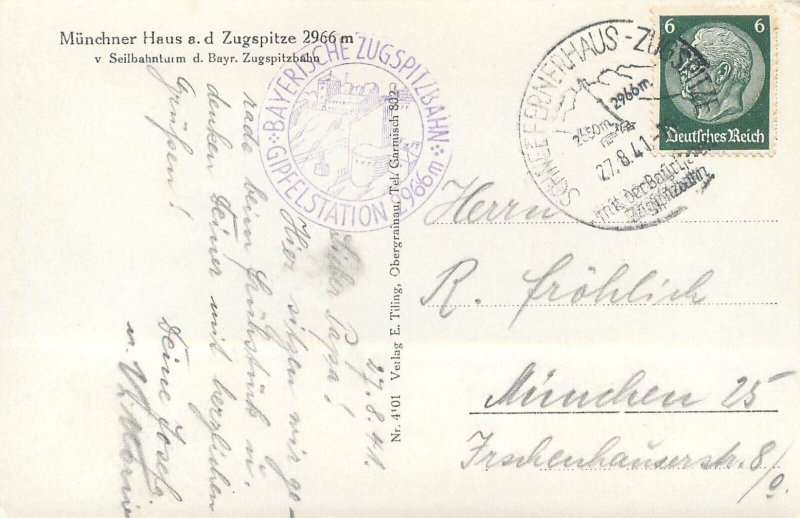 Münchner Haus a. d Zugspitze 2966 m
v Seilbahnturm d. Bayr. Zugspitzbahn
BAYERISCHE ZUGSPITZBAHN
GIPFELSTATION 2966 m
SCHNEEFERNERHAUS - ZUGSPITZE
2650m 2966m
27.8.41
mit der Bayr.
Zugspitzbahn
6 6
Deutsches Reich
27.8.41.
Lieber Papa!
Hier sitzen wir ge-
rade beim Frühstück u.
denken Deiner mit herzlichen
Grüßen!
Deine Josefa
u.
Nr. 4101 Verlag E. Tiling, Obergrainau, Tel. Garmisch 802
Herrn
R. Fröhlich
München 25
8/0.